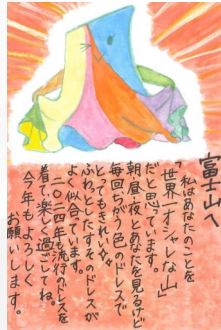 富士山へ
私はあなたのことを
「世界一オシャレな山」
だと思っています。
朝昼夜とあなたを見るけど
毎回ちがう色のドレスで
とってもきれい☆
ふわっとしたすそのドレスが
よく似合っています。
二〇二四年も流行のドレスを
着て、楽しく過ごしてね。
今年もよろしく
お願いします。